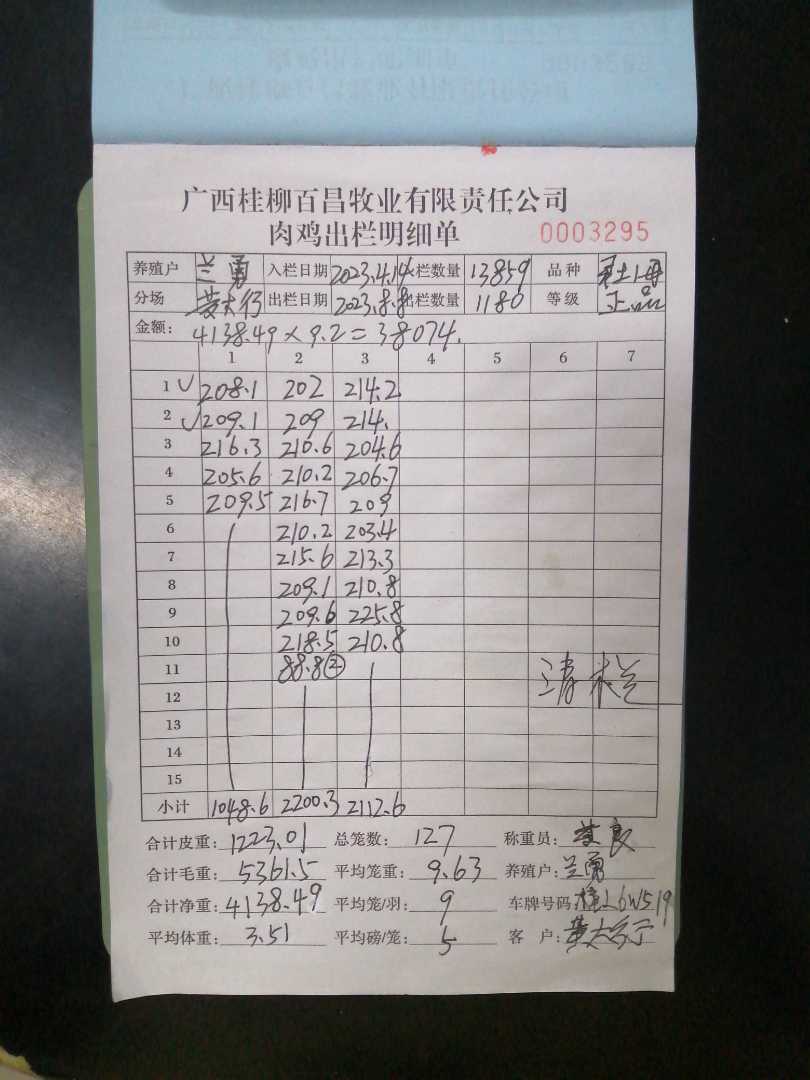 广西桂柳百昌牧业有限责任公司
肉鸡出栏明细单 0003295
养殖户 兰勇 入栏日期 2023.4.14 入栏数量 13859 品种
分场 黄大行 出栏日期 2023.8.8 出栏数量 1180 等级 正品
金额: 4138.49×9.2=38074.
1 2 3 4 5 6 7
1 ✓ 208.1 202 214.2
2 ✓ 209.1 209 214.
3 216.3 210.6 204.6
4 205.6 210.2 206.7
5 209.5 216.7 209
6 210.2 203.4
7 215.6 213.3
8 209.1 210.8
9 209.6 225.8
10 218.5 210.8
11 88.8② 清栏
12
13
14
15
小计 1048.6 2200.3 2112.6
合计皮重: 1223.01 总笼数: 127 称重员: 黄良
合计毛重: 5361.5 平均笼重: 9.63 养殖户: 兰勇
合计净重: 4138.49 平均笼/羽: 9 车牌号码: 桂L6W519
平均体重: 3.51 平均磅/笼: 5 客户: 黄大行